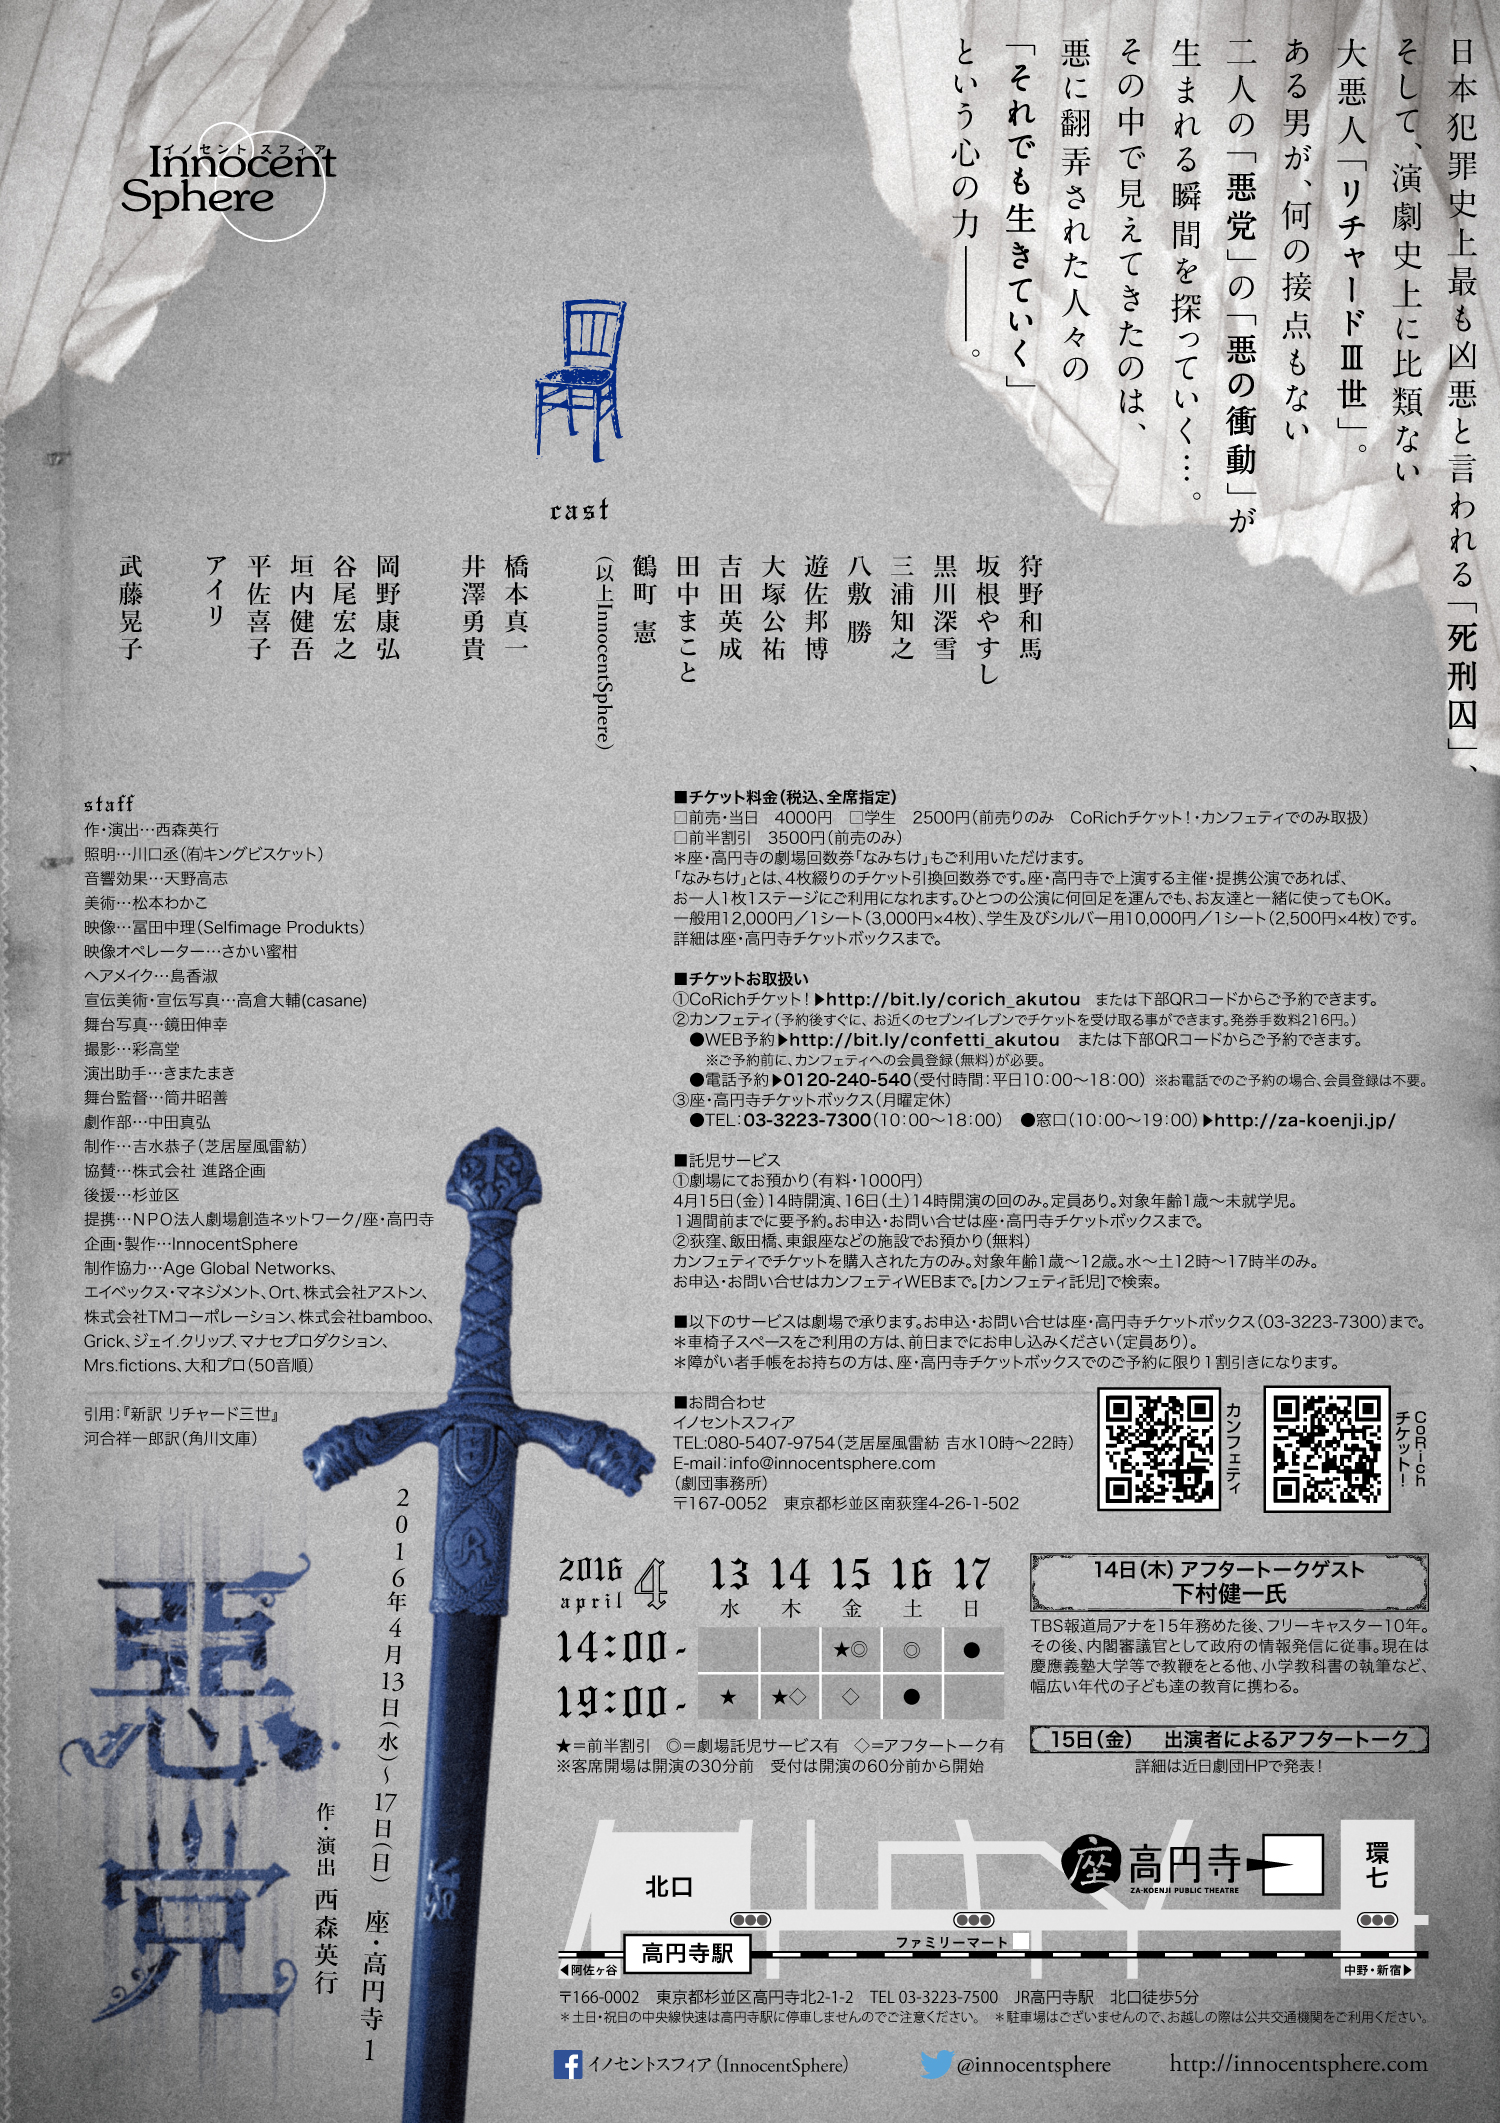 日本犯罪史上最も凶悪と言われる「死刑囚」、
そして、演劇史上に比類ない
大悪人「リチャードⅢ世」。
ある男が、何の接点もない
二人の「悪党」の「悪の衝動」が
生まれる瞬間を探っていく…。
その中で見えてきたのは、
悪に翻弄された人々の
「それでも生きていく」
という心の力───。
イノセントスフィア
Innocent
Sphere
cast
狩野和馬
坂根やすし
黒川深雪
三浦知之
八敷 勝
遊佐邦博
大塚公祐
吉田英成
田中まこと
鶴町 憲
（以上InnocentSphere）
橋本真一
井澤勇貴
岡野康弘
谷尾宏之
垣内健吾
平佐喜子
アイリ
武藤晃子
staff
作・演出…西森英行
照明…川口丞（㈲キングビスケット）
音響効果…天野高志
美術…松本わかこ
映像…冨田中理（Selfimage Produkts）
映像オペレーター…さかい蜜柑
ヘアメイク…島香淑
宣伝美術・宣伝写真…高倉大輔(casane)
舞台写真…鏡田伸幸
撮影…彩高堂
演出助手…きまたまき
舞台監督…筒井昭善
劇作部…中田真弘
制作…吉水恭子（芝居屋風雷紡）
協賛…株式会社 進路企画
後援…杉並区
提携…NPO法人劇場創造ネットワーク/座・高円寺
企画・製作…InnocentSphere
制作協力…Age Global Networks、
エイベックス・マネジメント、Ort、株式会社アストン、
株式会社TMコーポレーション、株式会社bamboo、
Grick、ジェイ.クリップ、マナセプロダクション、
Mrs.fictions、大和プロ（50音順）
引用：『新訳 リチャード三世』
河合祥一郎訳（角川文庫）
■チケット料金（税込、全席指定）
□前売・当日　4000円　□学生　2500円（前売りのみ　CoRichチケット！・カンフェティでのみ取扱）
□前半割引　3500円（前売のみ）
＊座・高円寺の劇場回数券「なみちけ」もご利用いただけます。
「なみちけ」とは、4枚綴りのチケット引換回数券です。座・高円寺で上演する主催・提携公演であれば、
お一人1枚1ステージにご利用になれます。ひとつの公演に何回足を運んでも、お友達と一緒に使ってもOK。
一般用12,000円／1シート（3,000円×4枚）、学生及びシルバー用10,000円／1シート（2,500円×4枚）です。
詳細は座・高円寺チケットボックスまで。
■チケットお取扱い
①CoRichチケット！▶http://bit.ly/corich_akutou　または下部QRコードからご予約できます。
②カンフェティ（予約後すぐに、お近くのセブンイレブンでチケットを受け取る事ができます。発券手数料216円。）
●WEB予約▶http://bit.ly/confetti_akutou　または下部QRコードからご予約できます。
※ご予約前に、カンフェティへの会員登録（無料）が必要。
●電話予約▶0120-240-540（受付時間：平日10：00〜18：00）※お電話でのご予約の場合、会員登録は不要。
③座・高円寺チケットボックス（月曜定休）
●TEL：03-3223-7300（10：00〜18：00）　●窓口（10：00〜19：00）▶http://za-koenji.jp/
■託児サービス
①劇場にてお預かり（有料・1000円）
4月15日（金）14時開演、16日（土）14時開演の回のみ。定員あり。対象年齢1歳〜未就学児。
1週間前までに要予約。お申込・お問い合せは座・高円寺チケットボックスまで。
②荻窪、飯田橋、東銀座などの施設でお預かり（無料）
カンフェティでチケットを購入された方のみ。対象年齢1歳〜12歳。水〜土12時〜17時半のみ。
お申込・お問い合せはカンフェティWEBまで。[カンフェティ託児]で検索。
■以下のサービスは劇場で承ります。お申込・お問い合せは座・高円寺チケットボックス（03-3223-7300）まで。
＊車椅子スペースをご利用の方は、前日までにお申し込みください（定員あり）。
＊障がい者手帳をお持ちの方は、座・高円寺チケットボックスでのご予約に限り1割引きになります。
■お問合わせ
イノセントスフィア
TEL:080-5407-9754（芝居屋風雷紡 吉水10時〜22時）
E-mail：info@innocentsphere.com
（劇団事務所）
〒167-0052　東京都杉並区南荻窪4-26-1-502
カンフェティ
CoRich
チケット！
2016年4月13日（水）〜17日（日）　座・高円寺1
悪党
作・演出 西森英行
R
2016
april 4
13 14 15 16 17
水 木 金 土 日
14:00- ★◎ ◎ ●
19:00- ★ ★◇ ◇ ●
★＝前半割引　◎＝劇場託児サービス有　◇＝アフタートーク有
※客席開場は開演の30分前　受付は開演の60分前から開始
14日（木） アフタートークゲスト
下村健一氏
TBS報道局アナを15年務めた後、フリーキャスター10年。
その後、内閣審議官として政府の情報発信に従事。現在は
慶應義塾大学等で教鞭をとる他、小学教科書の執筆など、
幅広い年代の子ども達の教育に携わる。
15日（金）　出演者によるアフタートーク
詳細は近日劇団HPで発表！
北口
座 高円寺
ZA-KOENJI PUBLIC THEATRE
環七
ファミリーマート
高円寺駅
◀阿佐ヶ谷
中野・新宿▶
〒166-0002　東京都杉並区高円寺北2-1-2　TEL 03-3223-7500　JR高円寺駅　北口徒歩5分
＊土日・祝日の中央線快速は高円寺駅に停車しませんのでご注意ください。　＊駐車場はございませんので、お越しの際は公共交通機関をご利用ください。
イノセントスフィア（InnocentSphere）
@innocentsphere
http://innocentsphere.com